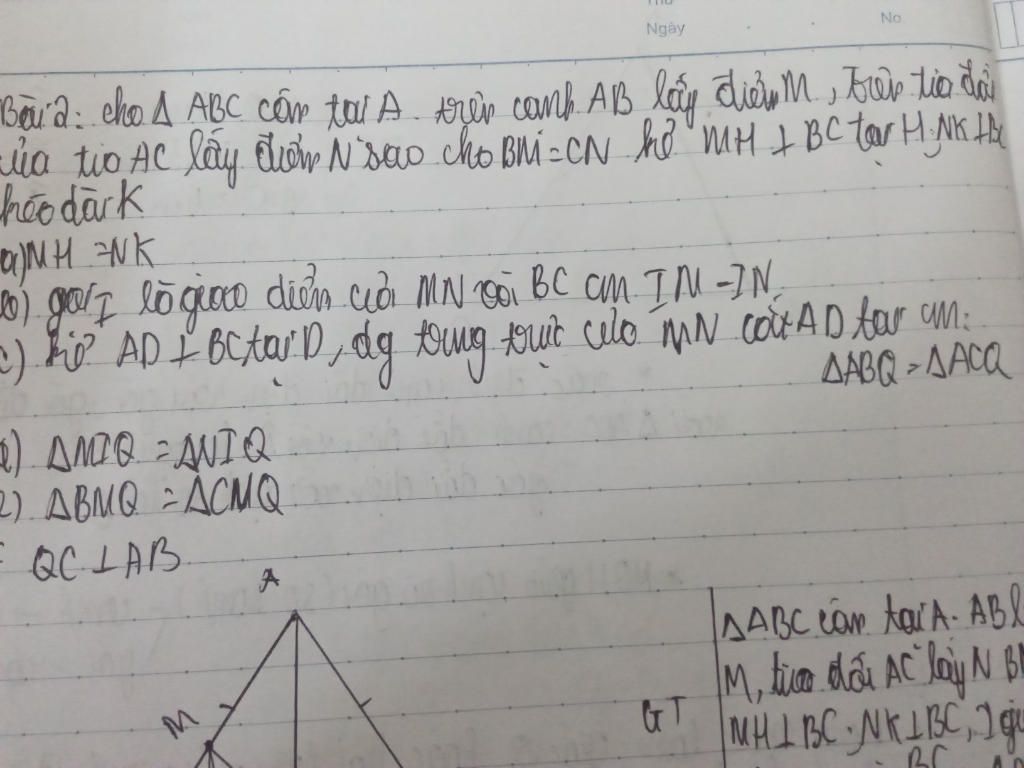 Ngày
No
Bài 2: cho Δ ABC cân tại A. trên cạnh AB lấy điểm M, trên tia đối
của tia AC lấy điểm N sao cho BM = CN kẻ MH ⊥ BC tại H; NK ⊥ BC
kéo dài K
a) MH = NK
b) gọi I là giao điểm của MN với BC cm IM = IN
c) kẻ AD ⊥ BC tại D, dg trung trực của MN cắt AD tại cm:
ΔABQ = ΔACQ
ΔMIQ = ΔNIQ
ΔBMQ = ΔCMQ
QC ⊥ AB
A
M
GT
ΔABC cân tại A. AB
M, tia đối AC lấy N
MH ⊥ BC, NK ⊥ BC, I
BC